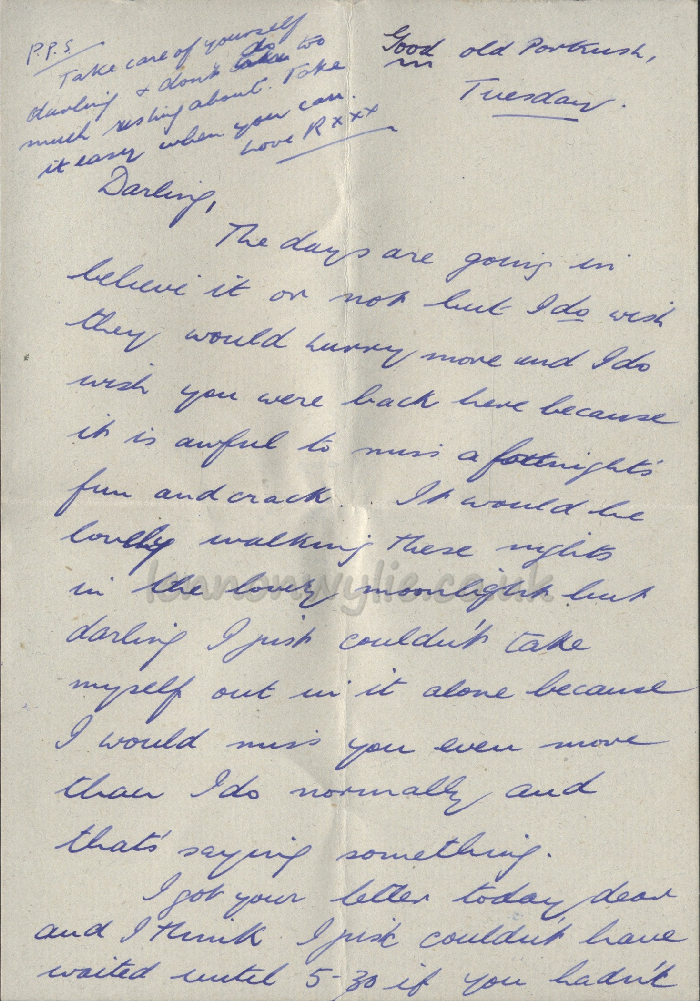 P.P.S
Take care of yourself
do
darling & don't too
much rushing about. Take
it easy when you can.
Love R xxx
Good old Portrush,
Tuesday.
Darling,
The days are going in
believe it or not but I do wish
they would hurry more and I do
wish you were back here because
it is awful to miss a fortnight's
fun and crack. It would be
lovely walking these nights
in the lovely moonlight but
darling I just couldn't take
myself out in it alone because
I would miss you even more
than I do normally and
that's saying something.
I got your letter today dear
and I think I just couldn't have
waited until 5-30 if you hadn't
lennonwylie.co.uk